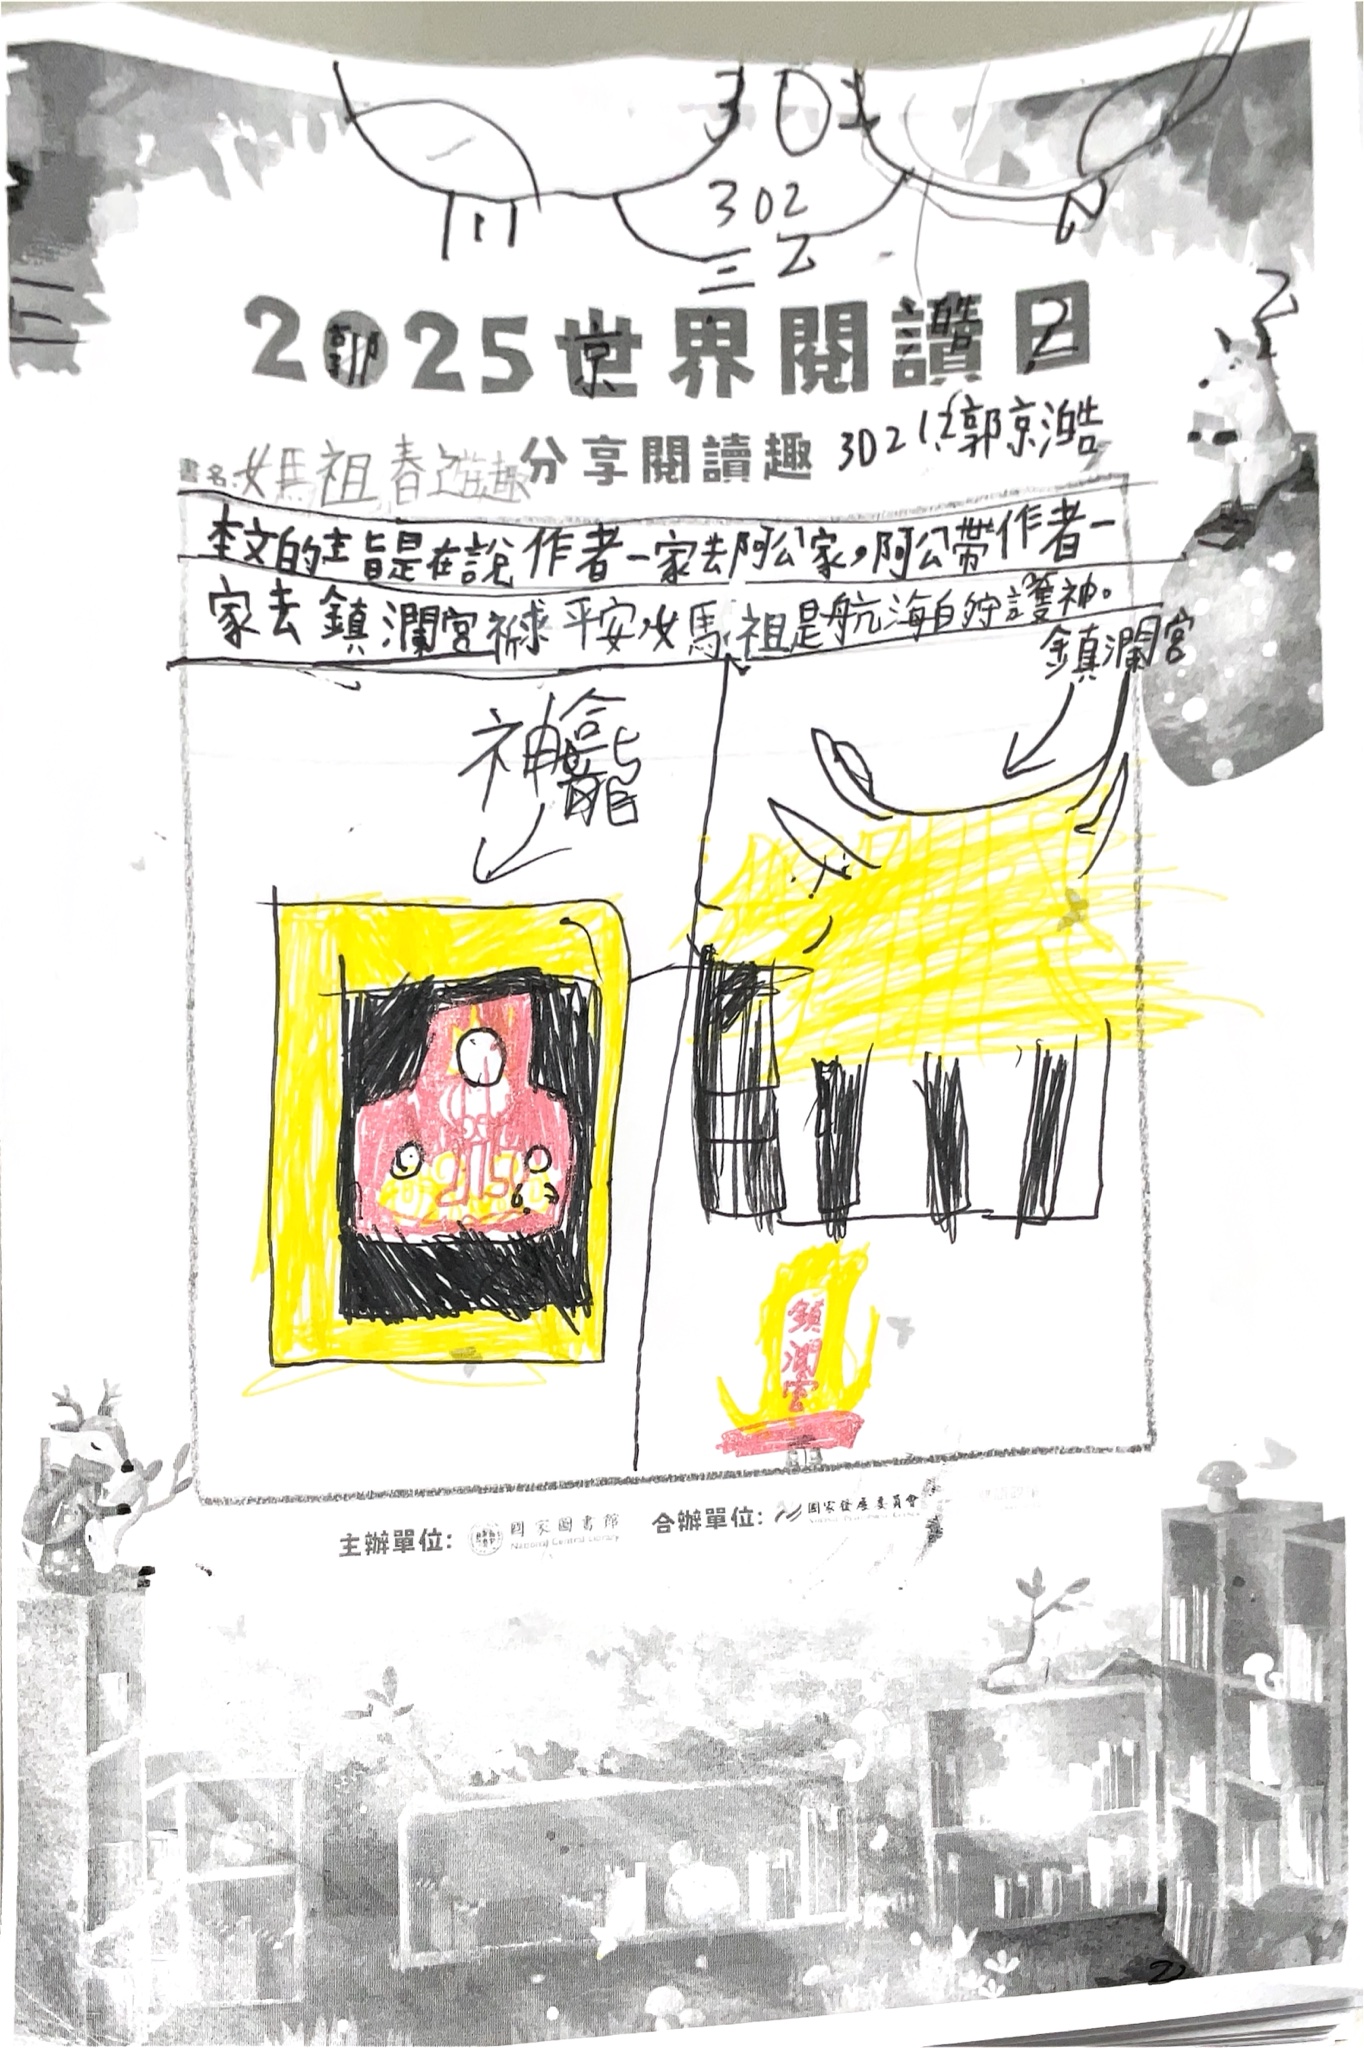 302
302
三乙
2025世界閱讀日
郭京澔
乙
分享閱讀趣
302 12郭京澔
書名 媽祖春遊趣
本文的主旨是在說作者一家去阿公家，阿公帶作者一
家去鎮瀾宮祈求平安媽祖是航海的守護神。
鎮瀾宮
神龕
鎮瀾宮
主辦單位：國家圖書館
National Central Library
合辦單位：國家發展委員會